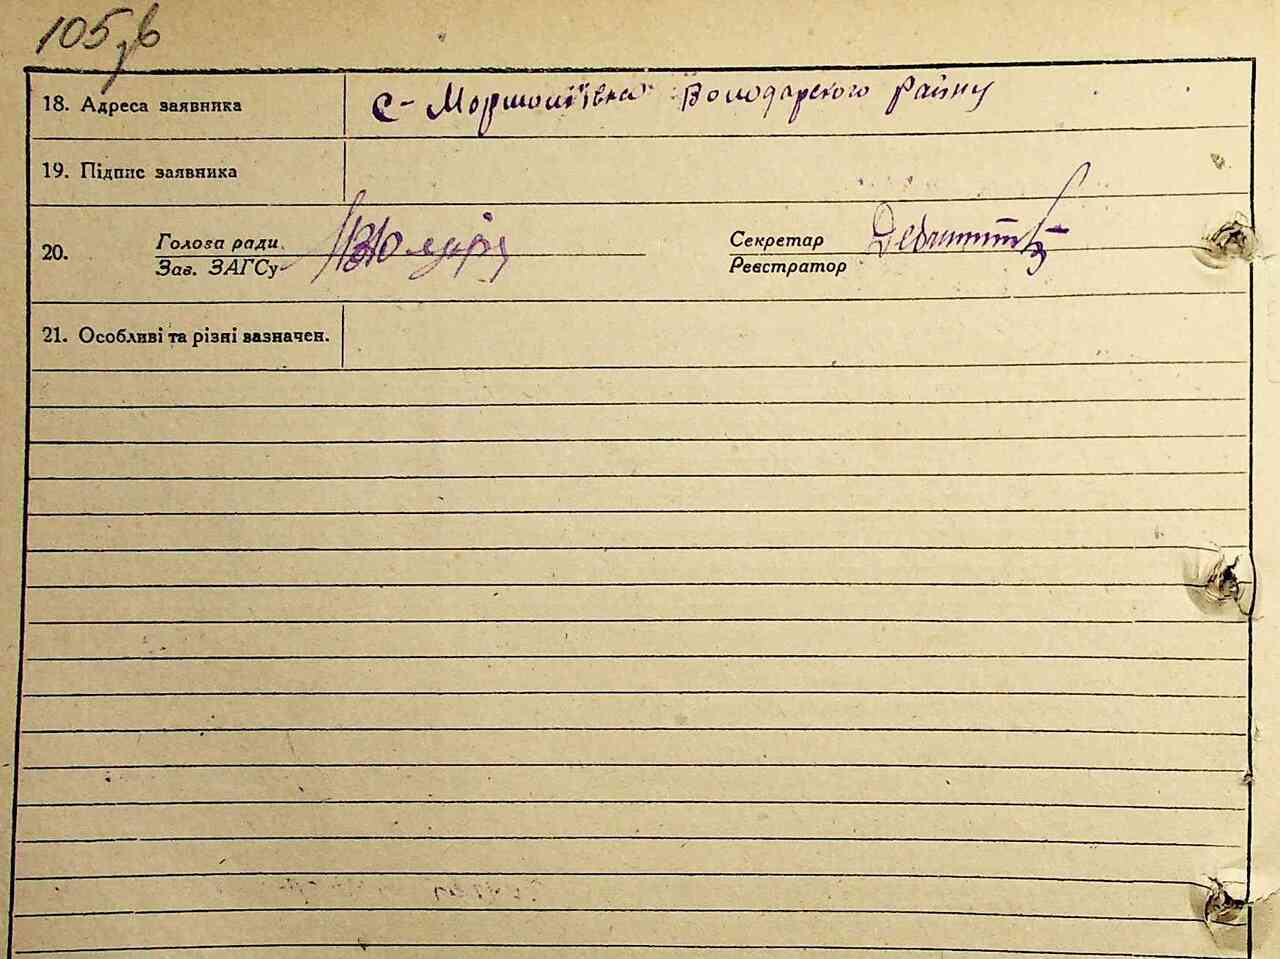 105зв
18. Адреса заявника с- Моршоліївка Володарского Району
19. Підпис заявника
20. Голова ради Зав. ЗАГСу Секретар Реєстратор
21. Особливі та різні зазначен.